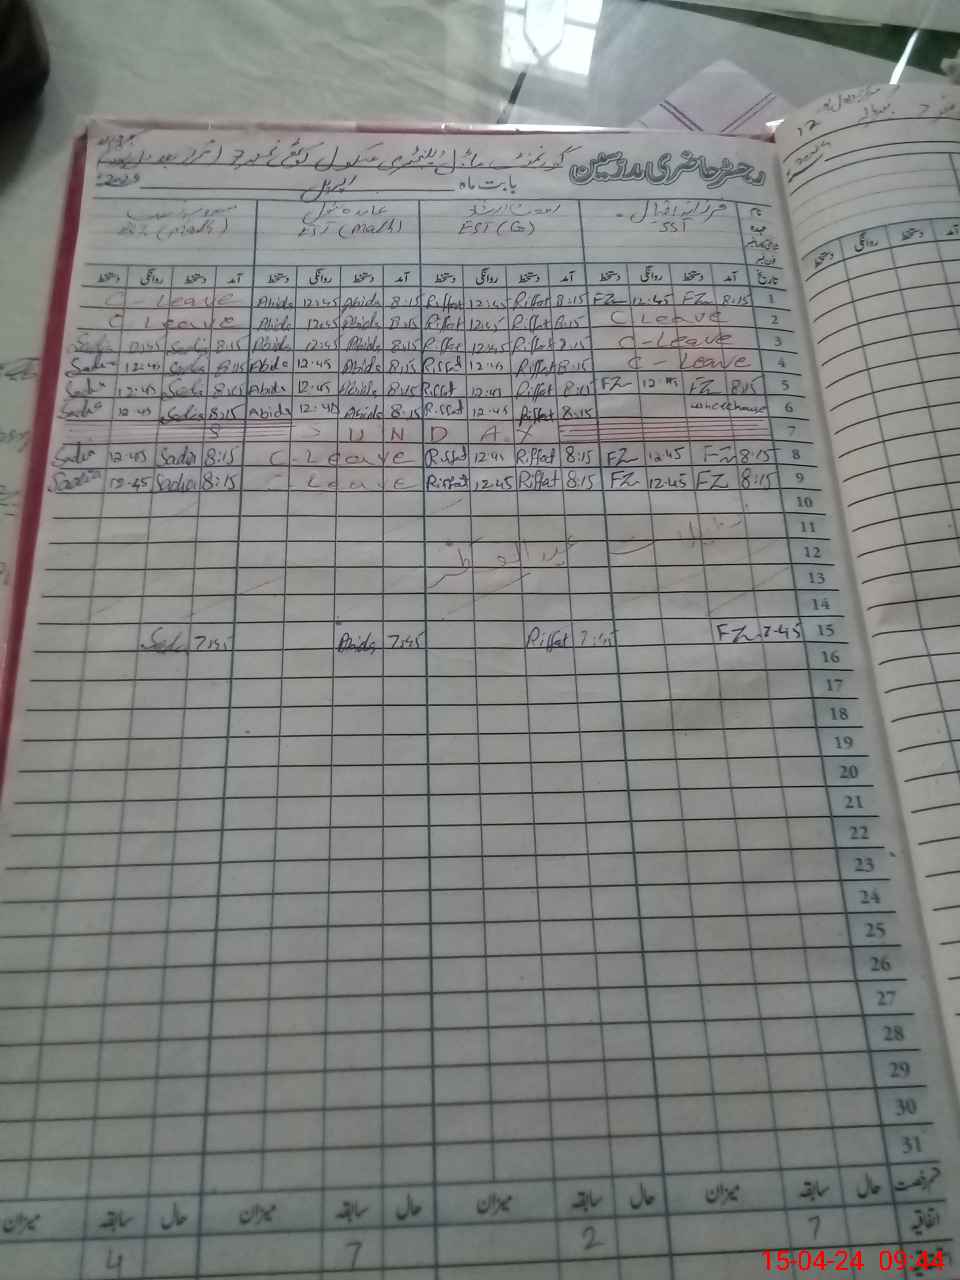 رجسٹر حاضری مدرسین گورنمنٹ ماڈل ایلیمنٹری سکول
بابت ماہ اپریل
نام فرزانہ اقبال
SST
EST (G)
EST (Math)
(Math)
تاریخ آمد دستخط روانگی دستخط آمد دستخط روانگی دستخط آمد دستخط روانگی دستخط آمد دستخط روانگی دستخط
C - Leave Abida 12:45 Abida 8:15 Riffat 12:45 Riffat 8:15 FZ 12.45 FZ 8:15 1
C Leave Abida 12:45 Abida 8:15 Riffat 12:45 Riffat 8:15 C Leave 2
Sadia 12:45 Sadia 8:15 Abida 12:45 Abida 8:15 Riffat 12:45 Riffat 8:15 C-Leave 3
Sadia 12:45 Sadia 8:15 Abida 12:45 Abida 8:15 Riffat 12:45 Riffat 8:15 C - Leave 4
Sadia 12:45 Sadia 8:15 Abida 12:45 Abida 8:15 Riffat 12:45 Riffat 8:15 FZ 12:45 FZ 8:15 5
Sadia 12:45 Sadia 8:15 Abida 12:45 Abida 8:15 Riffat 12:45 Riffat 8:15 6
S U N D A Y 7
Sadia 12:45 Sadia 8:15 C - Leave Riffat 12:45 Riffat 8:15 FZ 12:45 FZ 8:15 8
Sadia 12:45 Sadia 8:15 - Leave Riffat 12:45 Riffat 8:15 FZ 12:45 FZ 8:15 9
10
تعطیلات عید الفطر
11
12
13
14
Sadia 7:45 Abida 7:45 Riffat 7:45 FZ 7:45 15
16
17
18
19
20
21
22
23
24
25
26
27
28
29
30
31
قسم رخصت حال سابقہ میزان حال سابقہ میزان حال سابقہ میزان حال سابقہ میزان
اتفاقیہ 7 2 7 4
15-04-24 09:44